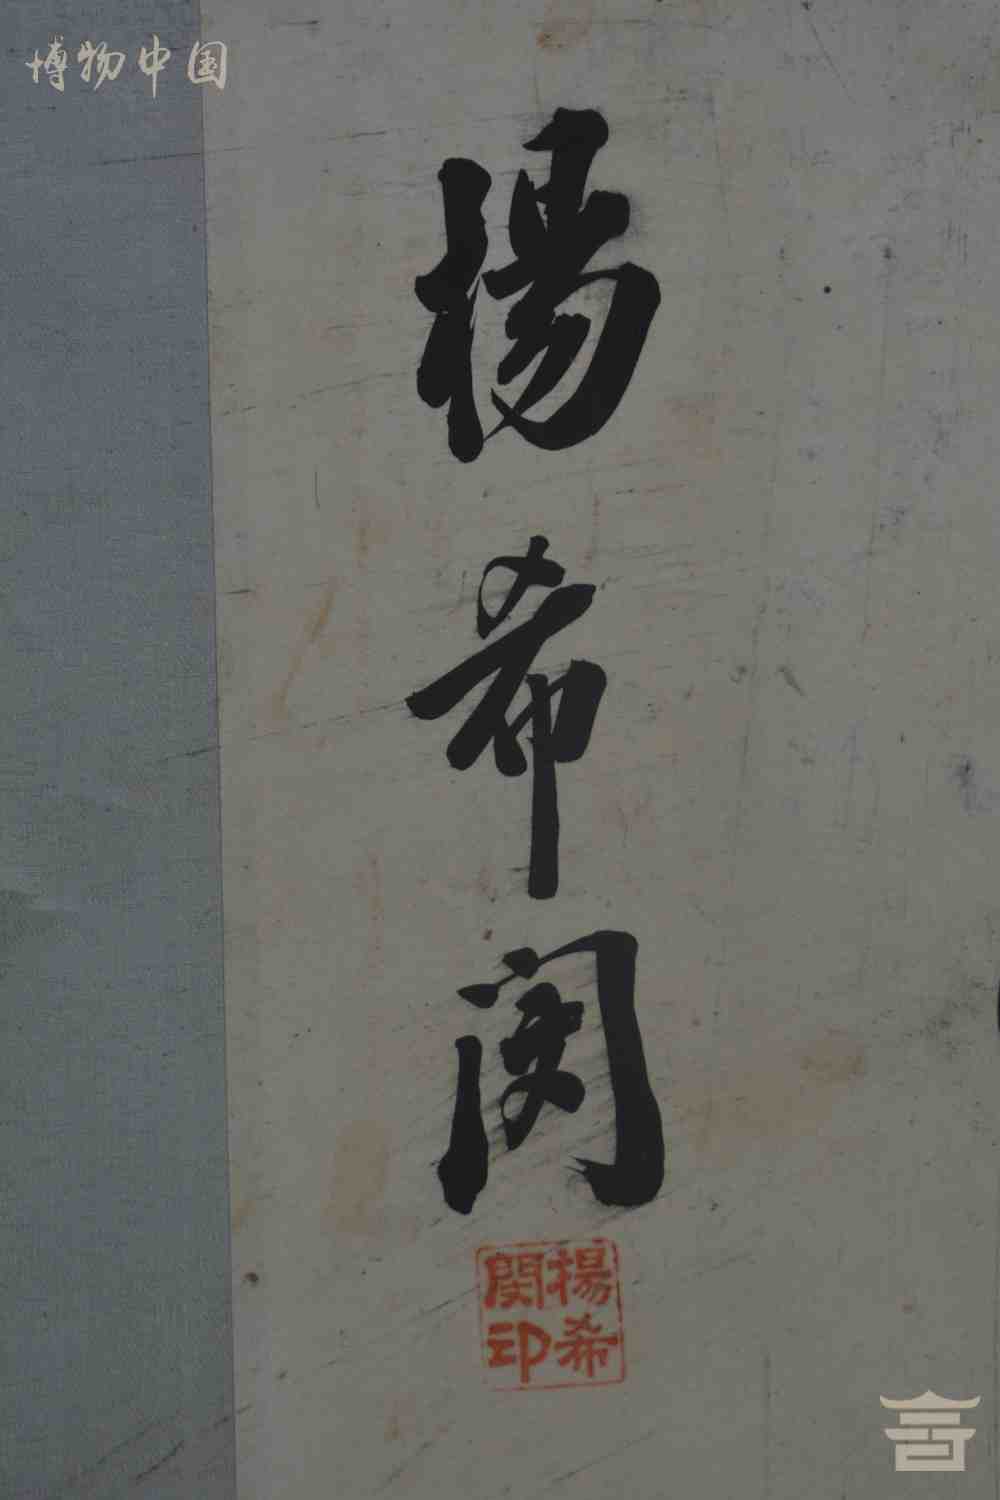 博物中国
楊希閔
楊希
閔印